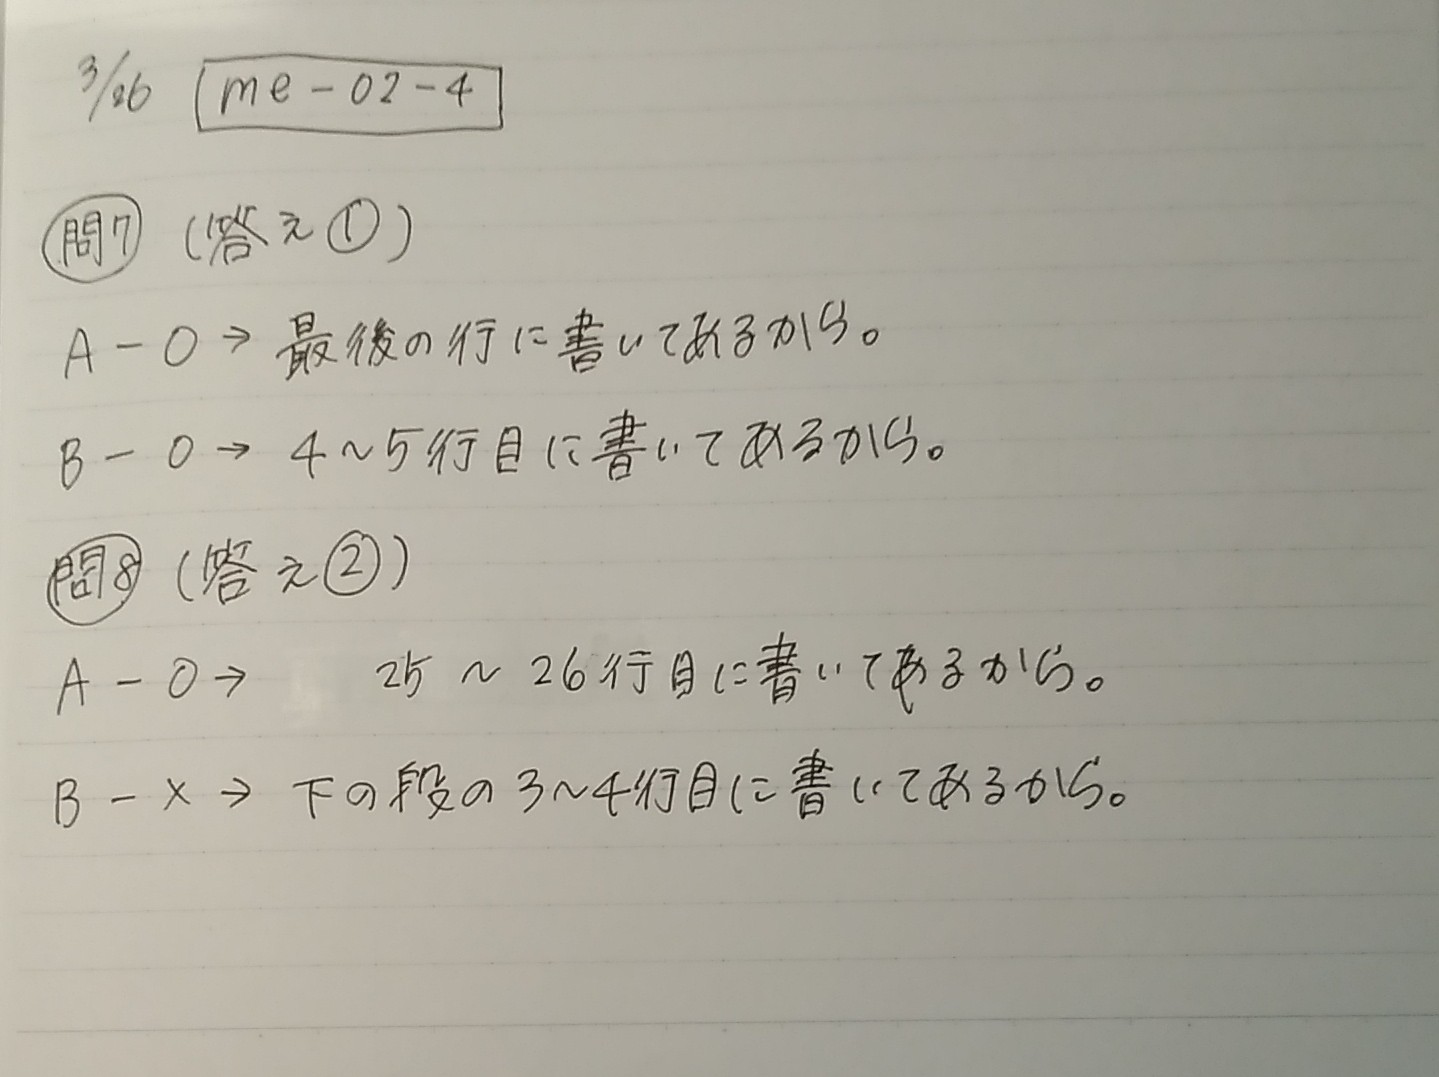 3/26 me-02-4
問7 (答え①)
A-○→最後の行に書いてあるから。
B-○→4~5行目に書いてあるから。
問8 (答え②)
A-○→ 25~26行目に書いてあるから。
B-×→下の段の3~4行目に書いてあるから。